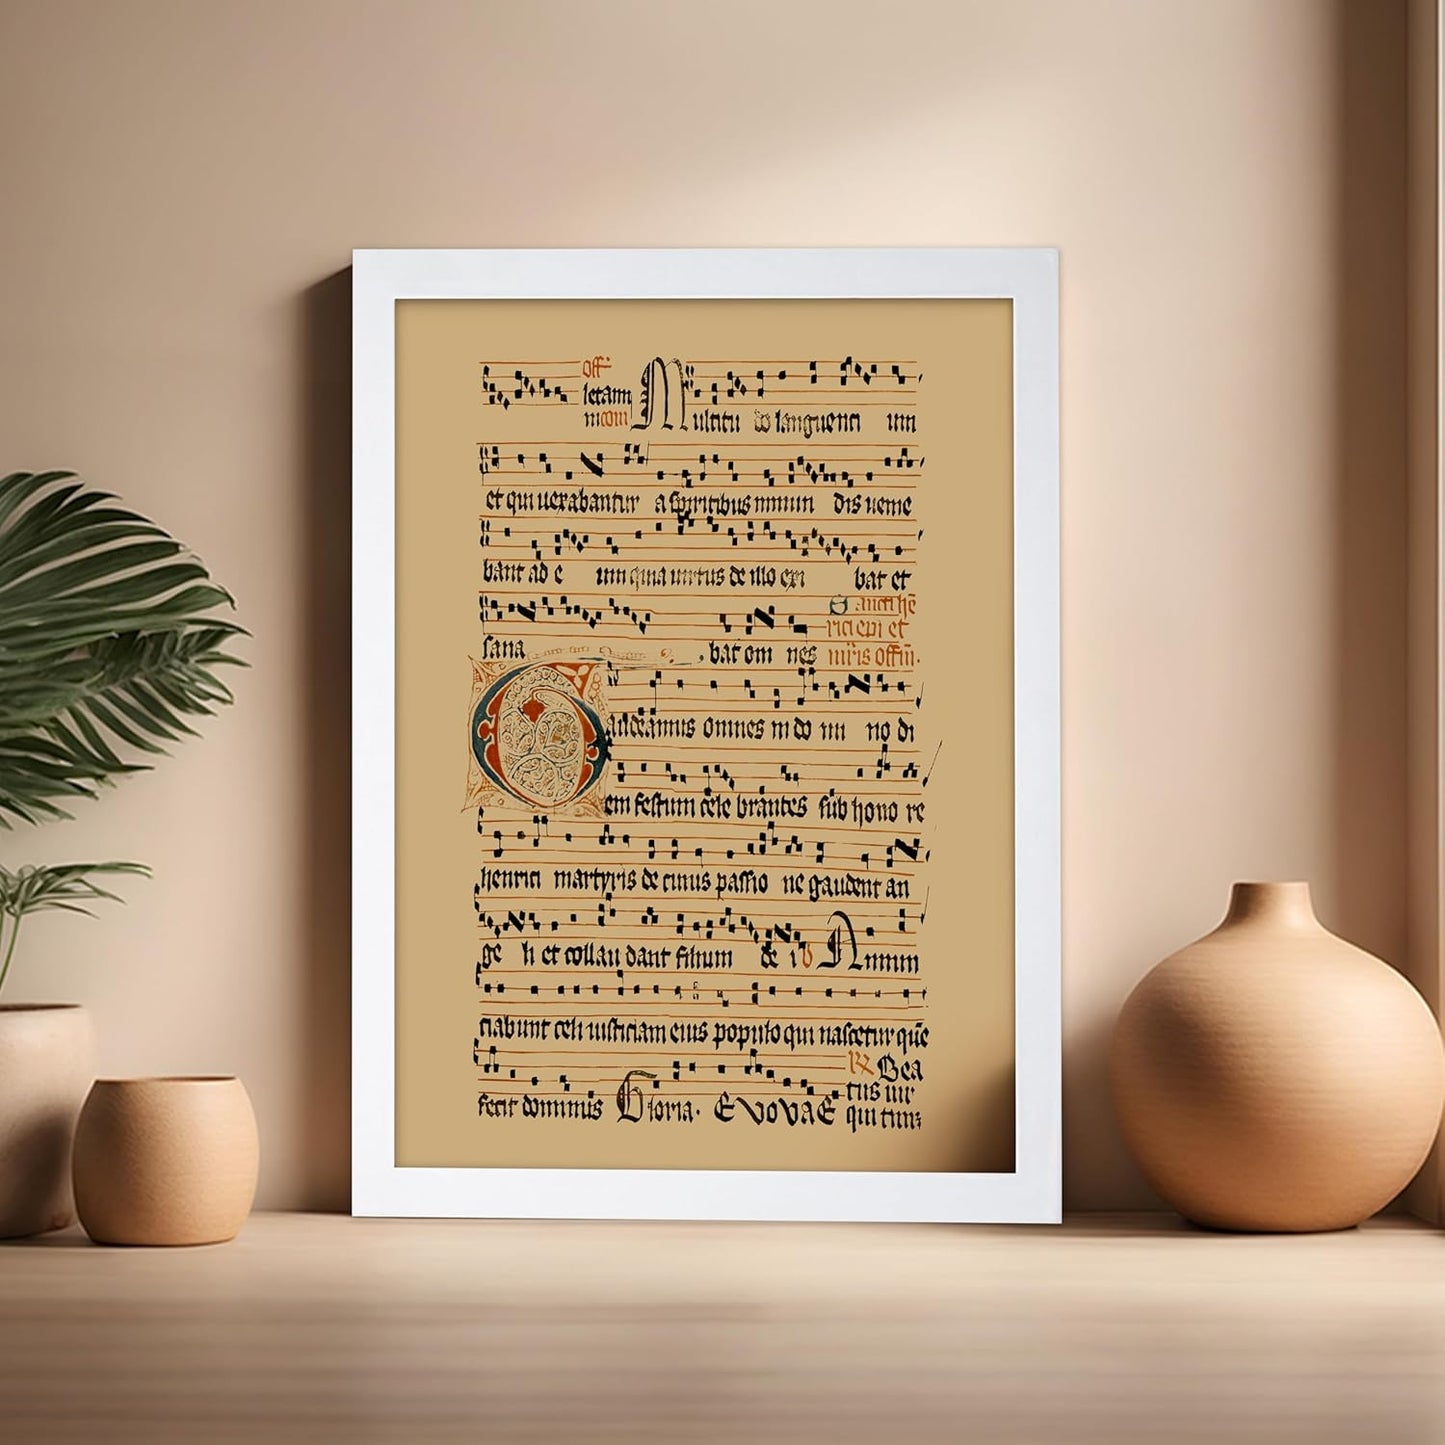 Off
letamini
com
Multitu do languenti um
et qui uexabantur a spiritibus inmun dis ueine
bant ad e um quia uirtus de illo exi bat et
Sancti hē
rici epi et
sana bat om nes mr̄is offm̄.
Gaudeamus omnes in do mi no di
em festum cele brantes sub hono re
henrici martyris de cuius passio ne gaudent an
ge li et collau dant filium de i V Annun
ciabunt celi iusticiam eius populo qui nascetur quē
fecit dominus Gloria. EVOVAE
R Bea
tus uir
qui tim